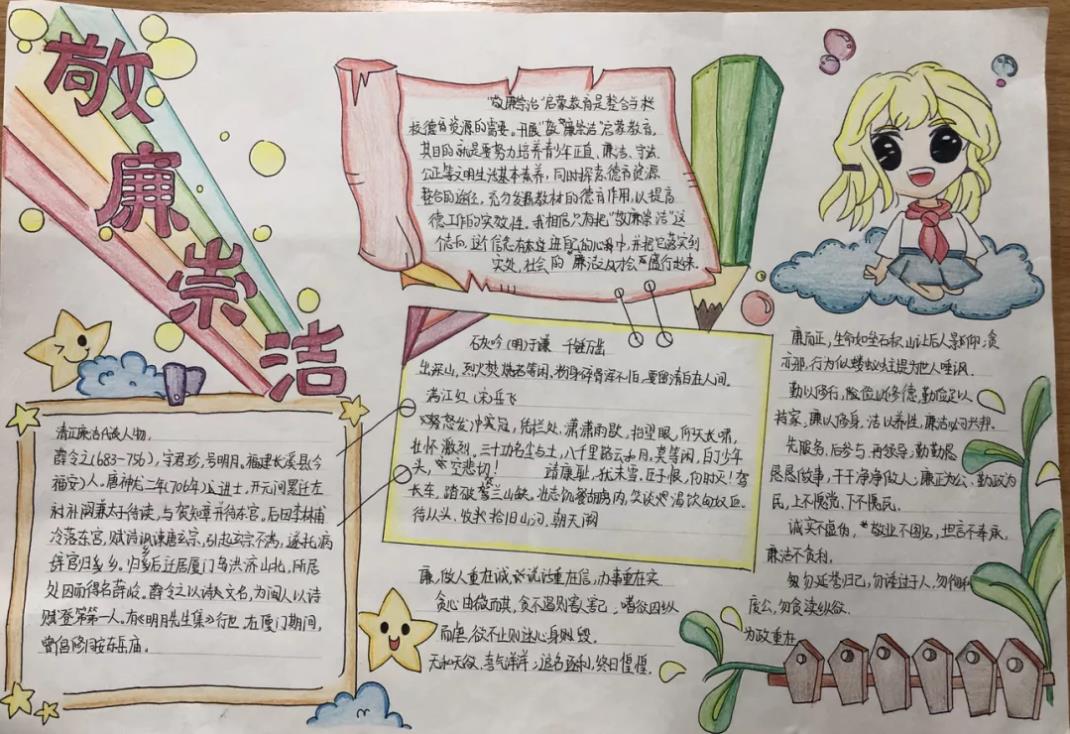 敬廉崇洁
"敬廉崇洁"启蒙教育是整合学校
校德育资源的需要。开展"敬廉崇洁"启蒙教育,
其目的就是要努力培养青少年正直、廉洁、守法、
公正等文明生活基本素养,同时探索德育资源
整合的途径,充分发掘教材的德育作用,以提高
德工作的实效性。我相信只有把"敬廉崇洁"这
信向,这个信念
的心中,并把它落实到
实处,社会的"廉洁之风才会盛行起来.
清正廉洁代表人物.
薛令之(683-756),字君珍,号明月。福建长溪县今
福安)人。唐神龙二年(706年)进士,开元间累迁左
补阙兼太子侍读,与贺知章并侍东宫。后因李林甫
冷落东宫,赋诗讽谏唐玄宗,引起玄宗不满,遂托病
辞官归乡。归乡后迁居厦门岛洪济山北,所居
处因而得名薛岭。薛令之以诗文名,为闽人以诗
赋登第第一人。有《明月先生集》行世,在厦门期间,
曾倡修同安东岳庙。
石灰吟 (明)于谦 千锤万凿
出深山,烈火焚烧若等闲.粉身碎骨浑不怕,要留清白在人间.
满江红 (宋)岳飞
怒发冲冠,凭栏处,潇潇雨歇,抬望眼,仰天长啸,
壮怀激烈。三十功名尘与土,八千里路云和月,莫等闲,白了少年
头,空悲切! 靖康耻,犹未雪,臣子恨,何时灭!驾
长车,踏破贺兰山缺。壮志饥餐胡虏肉,笑谈渴饮匈奴血.
待从头、收拾旧山河.朝天阙
廉,做人重在诚,说话重在信,办事重在实
贪心由微而其,贪不遏则害人害己;嗜欲因纵
而虐,欲不止则迷心身则毁.
天和天欲,喜气洋洋;追名逐利,终日惶惶.
廉而正,生命如垒石积山让后人景仰;贪
亦邪,行为似蝼蚁蛀堤为世人唾讽.
勤以修行,险位以修德,勤俭足以
持家,廉以修身,洁以养性,廉洁以兴邦.
先服务,后参与,再领导;勤勤恳
恳做事,干干净净做人;廉正为公、勤政为
民,上不愧党,下不愧民.
诚实不虚伪,敬业不图名,坦言不奉承,
廉洁不贪利.
勿忘誉归己,勿诿过于人,勿徇私
废公,勿贪渎纵欲.
为政重在